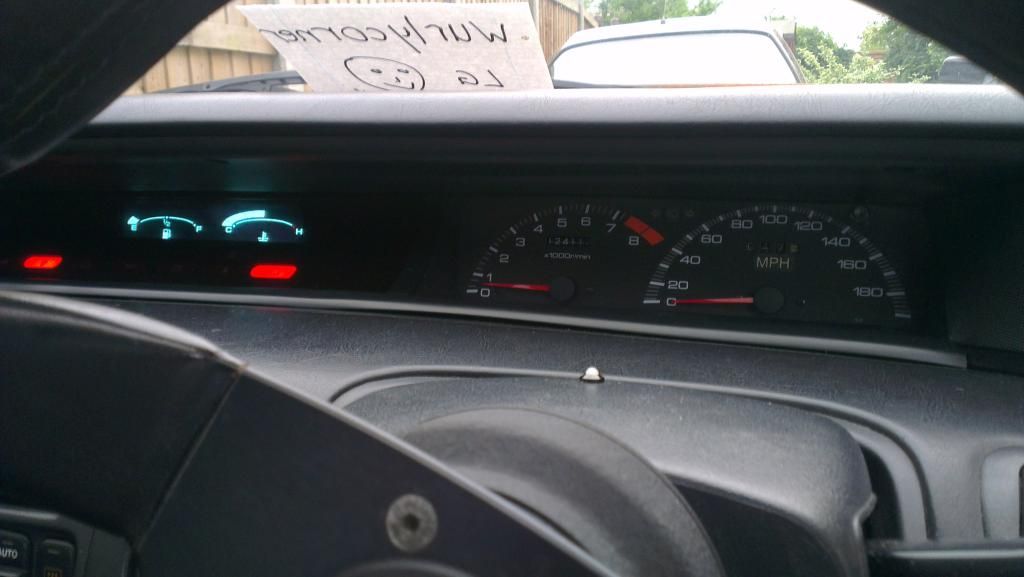 Wurlycorner
LG
E ½ F
C H
0 1 2 3 4 5 6 7 8
x1000r/min
0 20 40 60 80 100 120 140 160 180
MPH
AUTO